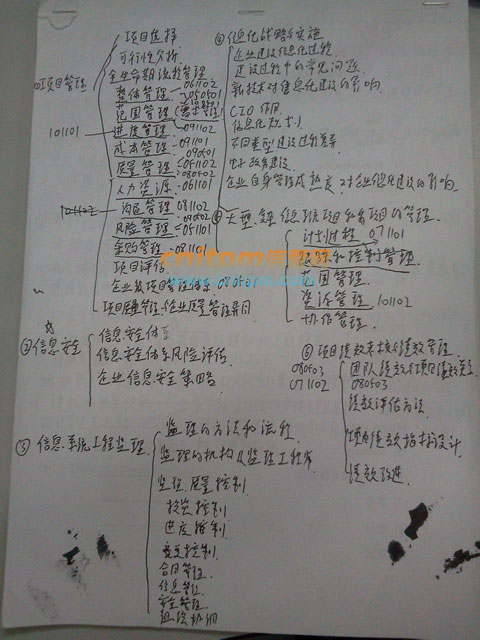 ①项目管理
项目选择
可行性分析
全生命期流程管理
整体管理 061102
050501
范围管理 (需求管理)
101101
进度管理 091102
成本管理 091101
090501
质量管理 051102
080502
人力资源 061101
101102
沟通管理 081102
080502
风险管理 051101
采购管理 081101
项目评估
企业级项目管理体系 080501
项目质量管理/企业质量管理异同
②信息安全
信息安全体系
信息安全体系风险评估
企业信息安全策略
③信息系统工程监理
监理的方法和流程
监理的机构及监理工程师
监理质量控制
投资控制
进度控制
变更控制
合同管理
信息管理
安全管理
组织协调
④信息化战略与实施
企业建设信息化过程
建设过程中的常见问题
新技术对信息化建设的影响
CIO作用
信息化规划
不同类型建设过程差异
电子政务建设
企业自身管理成熟度对企业信息化建设的影响
大型、复杂信息系统项目和多项目的管理
计划过程 071101
跟踪和控制管理
范围管理
资源管理 101102
协作管理
⑥项目绩效考核与绩效管理
080503
071102
团队绩效与项目绩效关系
080503
绩效评估方法
项目绩效指标设计
绩效改进
cnitom